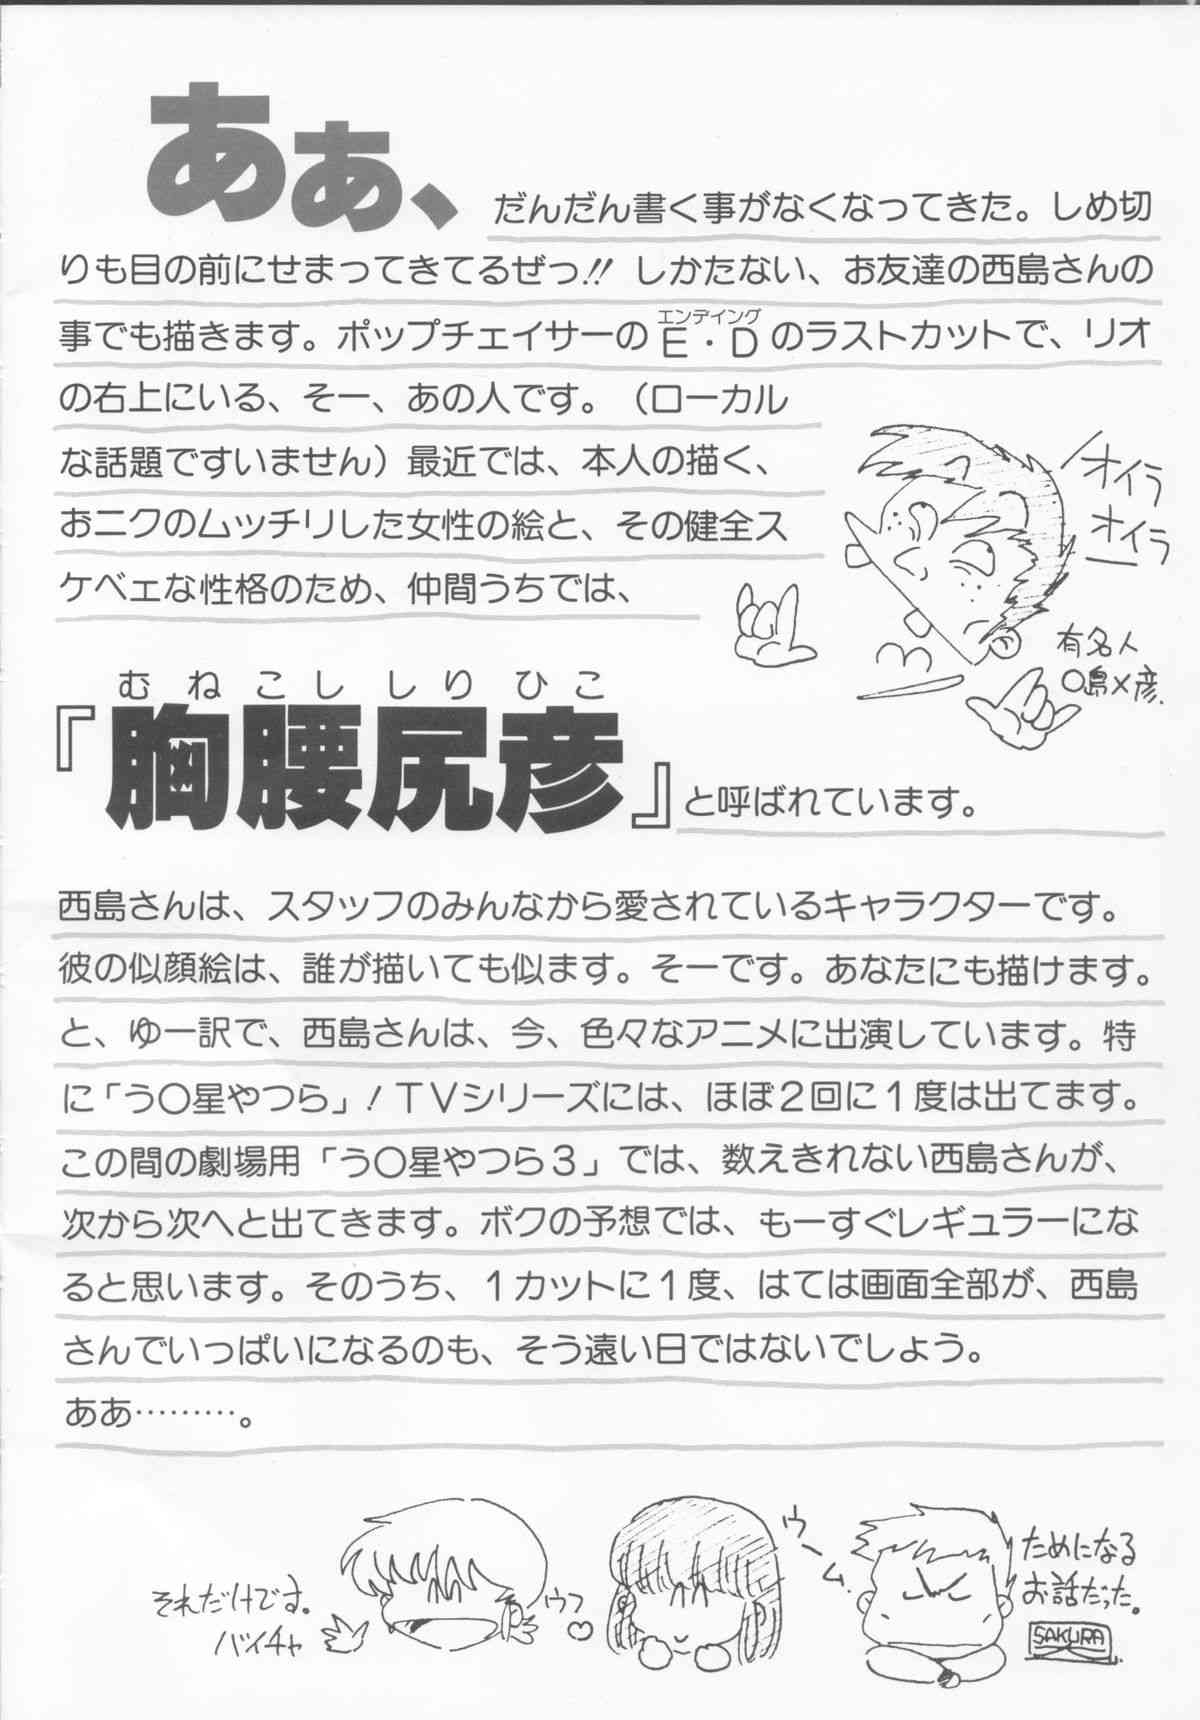 ああ、だんだん書く事がなくなってきた。しめ切
りも目の前にせまってきてるぜっ!! しかたない、お友達の西島さんの
エンデイング
事でも描きます。ポップチェイサーのE・Dのラストカットで、リオ
の右上にいる、そー、あの人です。（ローカル
な話題ですいません）最近では、本人の描く、
おニクのムッチリした女性の絵と、その健全ス
ケベェな性格のため、仲間うちでは、
オイラ
オイラ
有名人
〇島×彦.
むねこししりひこ
『胸腰尻彦』と呼ばれています。
西島さんは、スタッフのみんなから愛されているキャラクターです。
彼の似顔絵は、誰が描いても似ます。そーです。あなたにも描けます。
と、ゆー訳で、西島さんは、今、色々なアニメに出演しています。特
に「う〇星やつら」！TVシリーズには、ほぼ２回に１度は出てます。
この間の劇場用「う〇星やつら３」では、数えきれない西島さんが、
次から次へと出てきます。ボクの予想では、もーすぐレギュラーにな
ると思います。そのうち、１カットに１度、はては画面全部が、西島
さんでいっぱいになるのも、そう遠い日ではないでしょう。
ああ………。
それだけです。
バイチャ
ウフ♡
ウーム.
ためになる
お話だった。
SAKURA